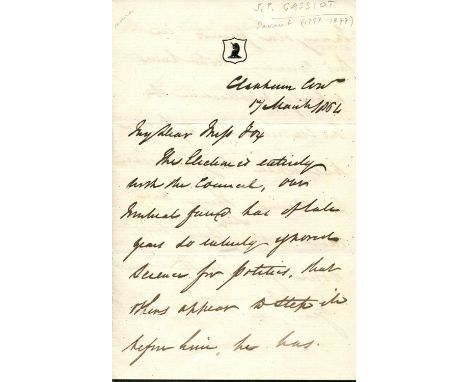 J.P. GASSIOT
Savant (1797-1877)
Clapham Com
17 March 1864
My dear Miss Fox
The Election is entirely
with the Council, our
Mutual friend has of late
years so entirely ignored
Science for politics, that
others appear to step in
before him, he has